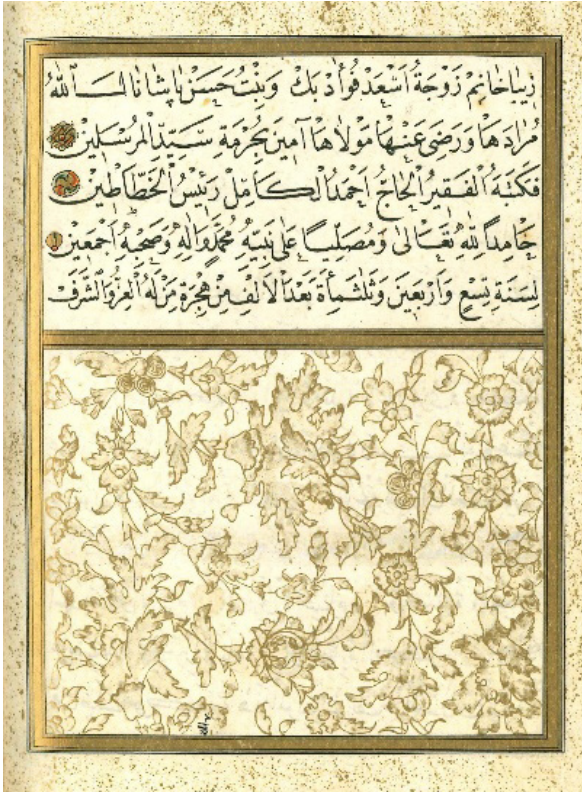 زيبا خانم زَوْجَةُ اَسْعَدْ فُوأدْ بَكْ وَبِنْتُ حَسَنْ پاشا نالــــَ اللهُ
مُرَادَهَا وَرَضِىَ عَنْهَا مَوْلَاهَا آمِينَ بِحُرْمَةِ سَيِّدِ الْمُرْسَلِينَ
فَكَتَبَهُ الْفَقِيرُ الْحَاجُّ اَحْمَدُ الْكَامِلْ رَئِيسُ الْخَطَّاطِينَ
حَامِدًا لِلّٰهِ تَعَالٰى وَمُصَلِّيًا عَلٰى نَبِيِّهِ مُحَمَّدٍ وَاٰلِهِ وَصَحْبِهِ اَجْمَعِينَ
لِسَنَةِ تِسْعٍ وَاَرْبَعِينَ وَثَلٰثَمِأَةٍ بَعْدَ الْاَلْفِ مِنْ هِجْرَةِ مَنْ لَهُ الْعِزُّ وَالشَّرَفْ